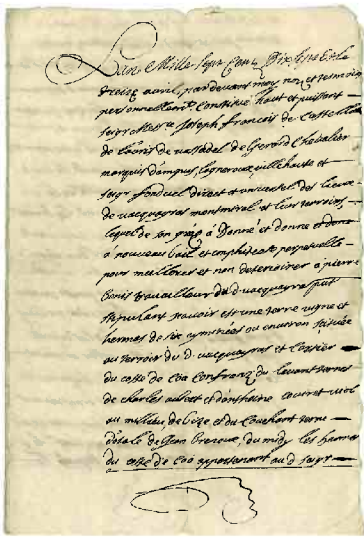 L'an Mille sept Cens Dix sept et le
treize avril, par devant moy no.re et tesmoins
personnellem.t Constitué haut et puissant
seig.r Messire Joseph francois de Castellane
de Lauris de vassadel de Gerard Chevalier
marquis d'ampus, Lagneroux ville haute et
seig.r foncier direct et universel des lieux
de vacqueyras montmiral et leur terroirs,
lequel de son gré a Donné et donne et
a nouveau bail et emphiteose perpetuelle
pour meilliorer et non deteriorer a pierre
travailleur du d. vacqueyras
stipulant scavoir est une terre vigne et
hermas de six eyminées ou environ scituée
au terroir du d. vacqueyras et cartier
du coste de Coa Confront du levant terre
de charles et d'anthoine
au millieu, de bize et du Couchant terre
dotale de Jean du midy les hermas
du coste de Coa appartenant au d. seig.r